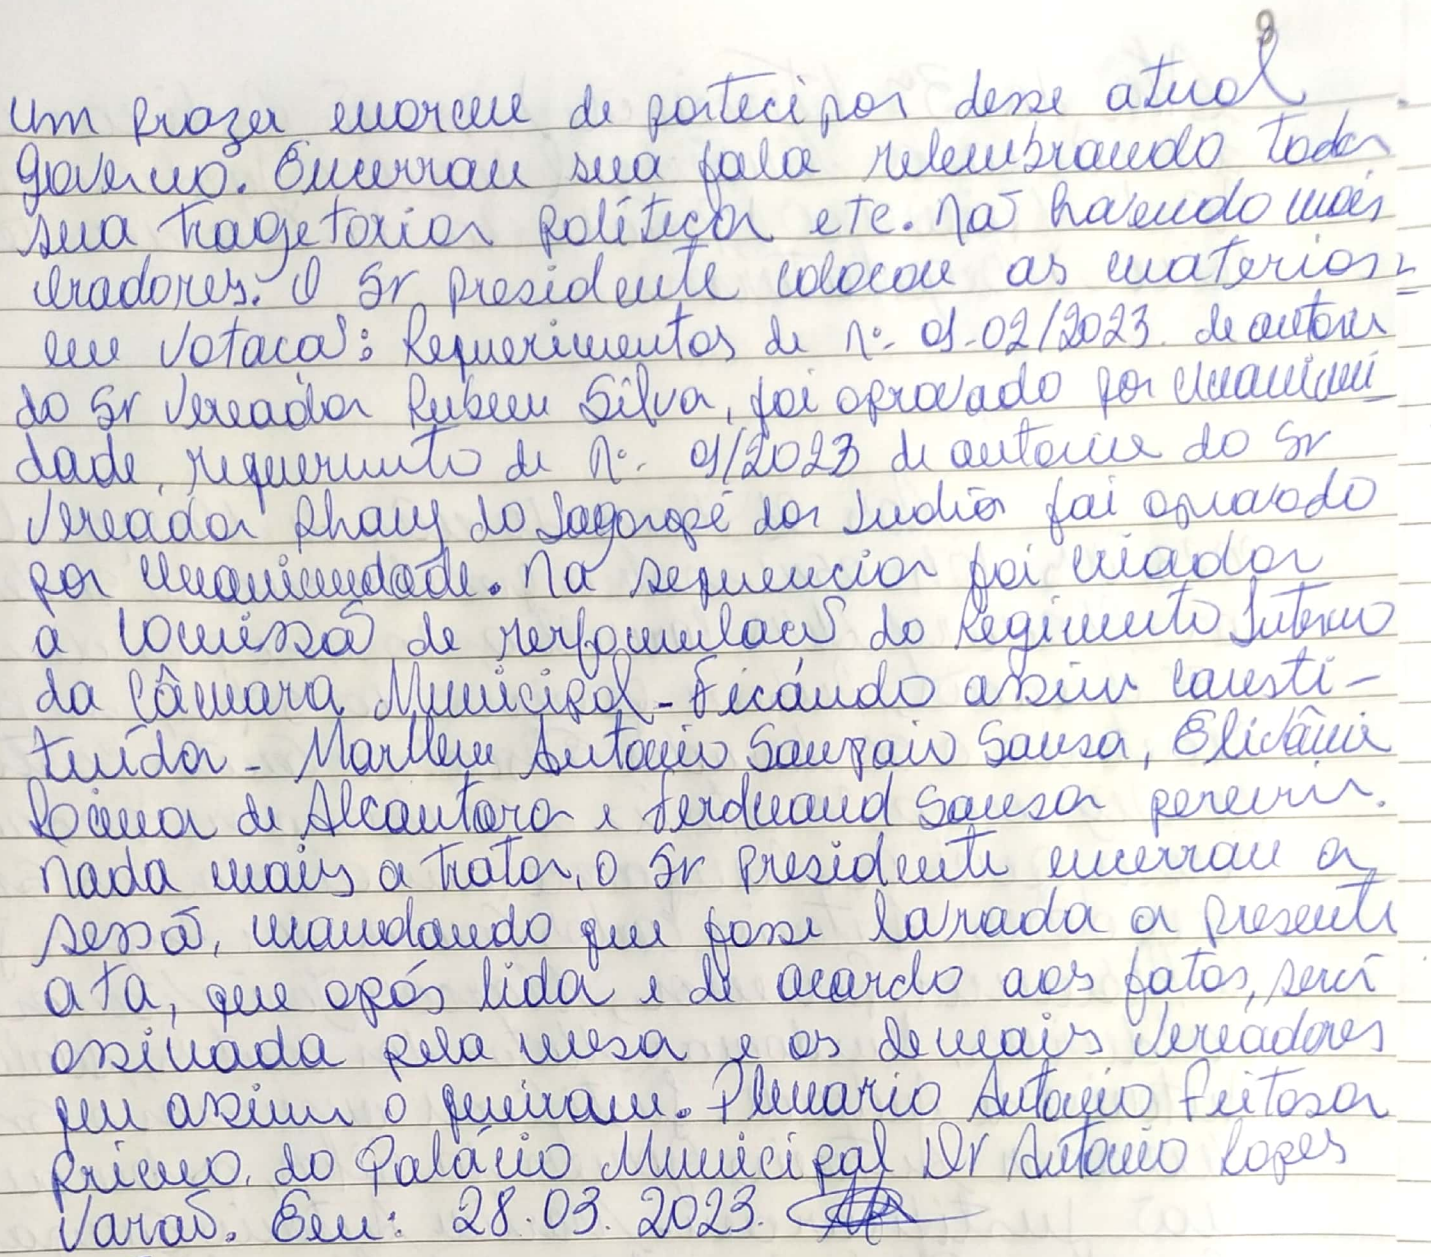 9
um prazer enorme de partecipar desse atual
governo. Encerrou sua fala relembrando toda
sua tragetoria politica etc. não havendo mais
oradores. O Sr presidente colocou as materias
em votacão: Requerimentos de nº. 01-02/2023. de autoria
do Sr Vereador Rubem Silva, foi aprovado por unanimi
dade, requerimto de nº. 01/2023 de autoria do Sr
Vereador Rhauy do da India foi aprovado
por unanimidade. Na sequencia foi criada
a comissão de rerfomulacão do Regimento Interno
da Câmara Municipal - Ficando assim consti-
tuída - Marllem Antonio Sampaio Sousa, Elivânia
de Alcantara e Ferdinand Sousa pereira.
nada mais a tratar, o Sr presidente encerrou a
sessão, mandando que fosse lavrada a presente
ata, que após lida e de acordo aos fatos, será
assinada pela mesa e os demais Vereadores
que assim o queiram. Plenario Antonio Feitosa
primo, do Palácio Municipal Dr Antonio Lopes
Varão. Em: 28.03.2023.